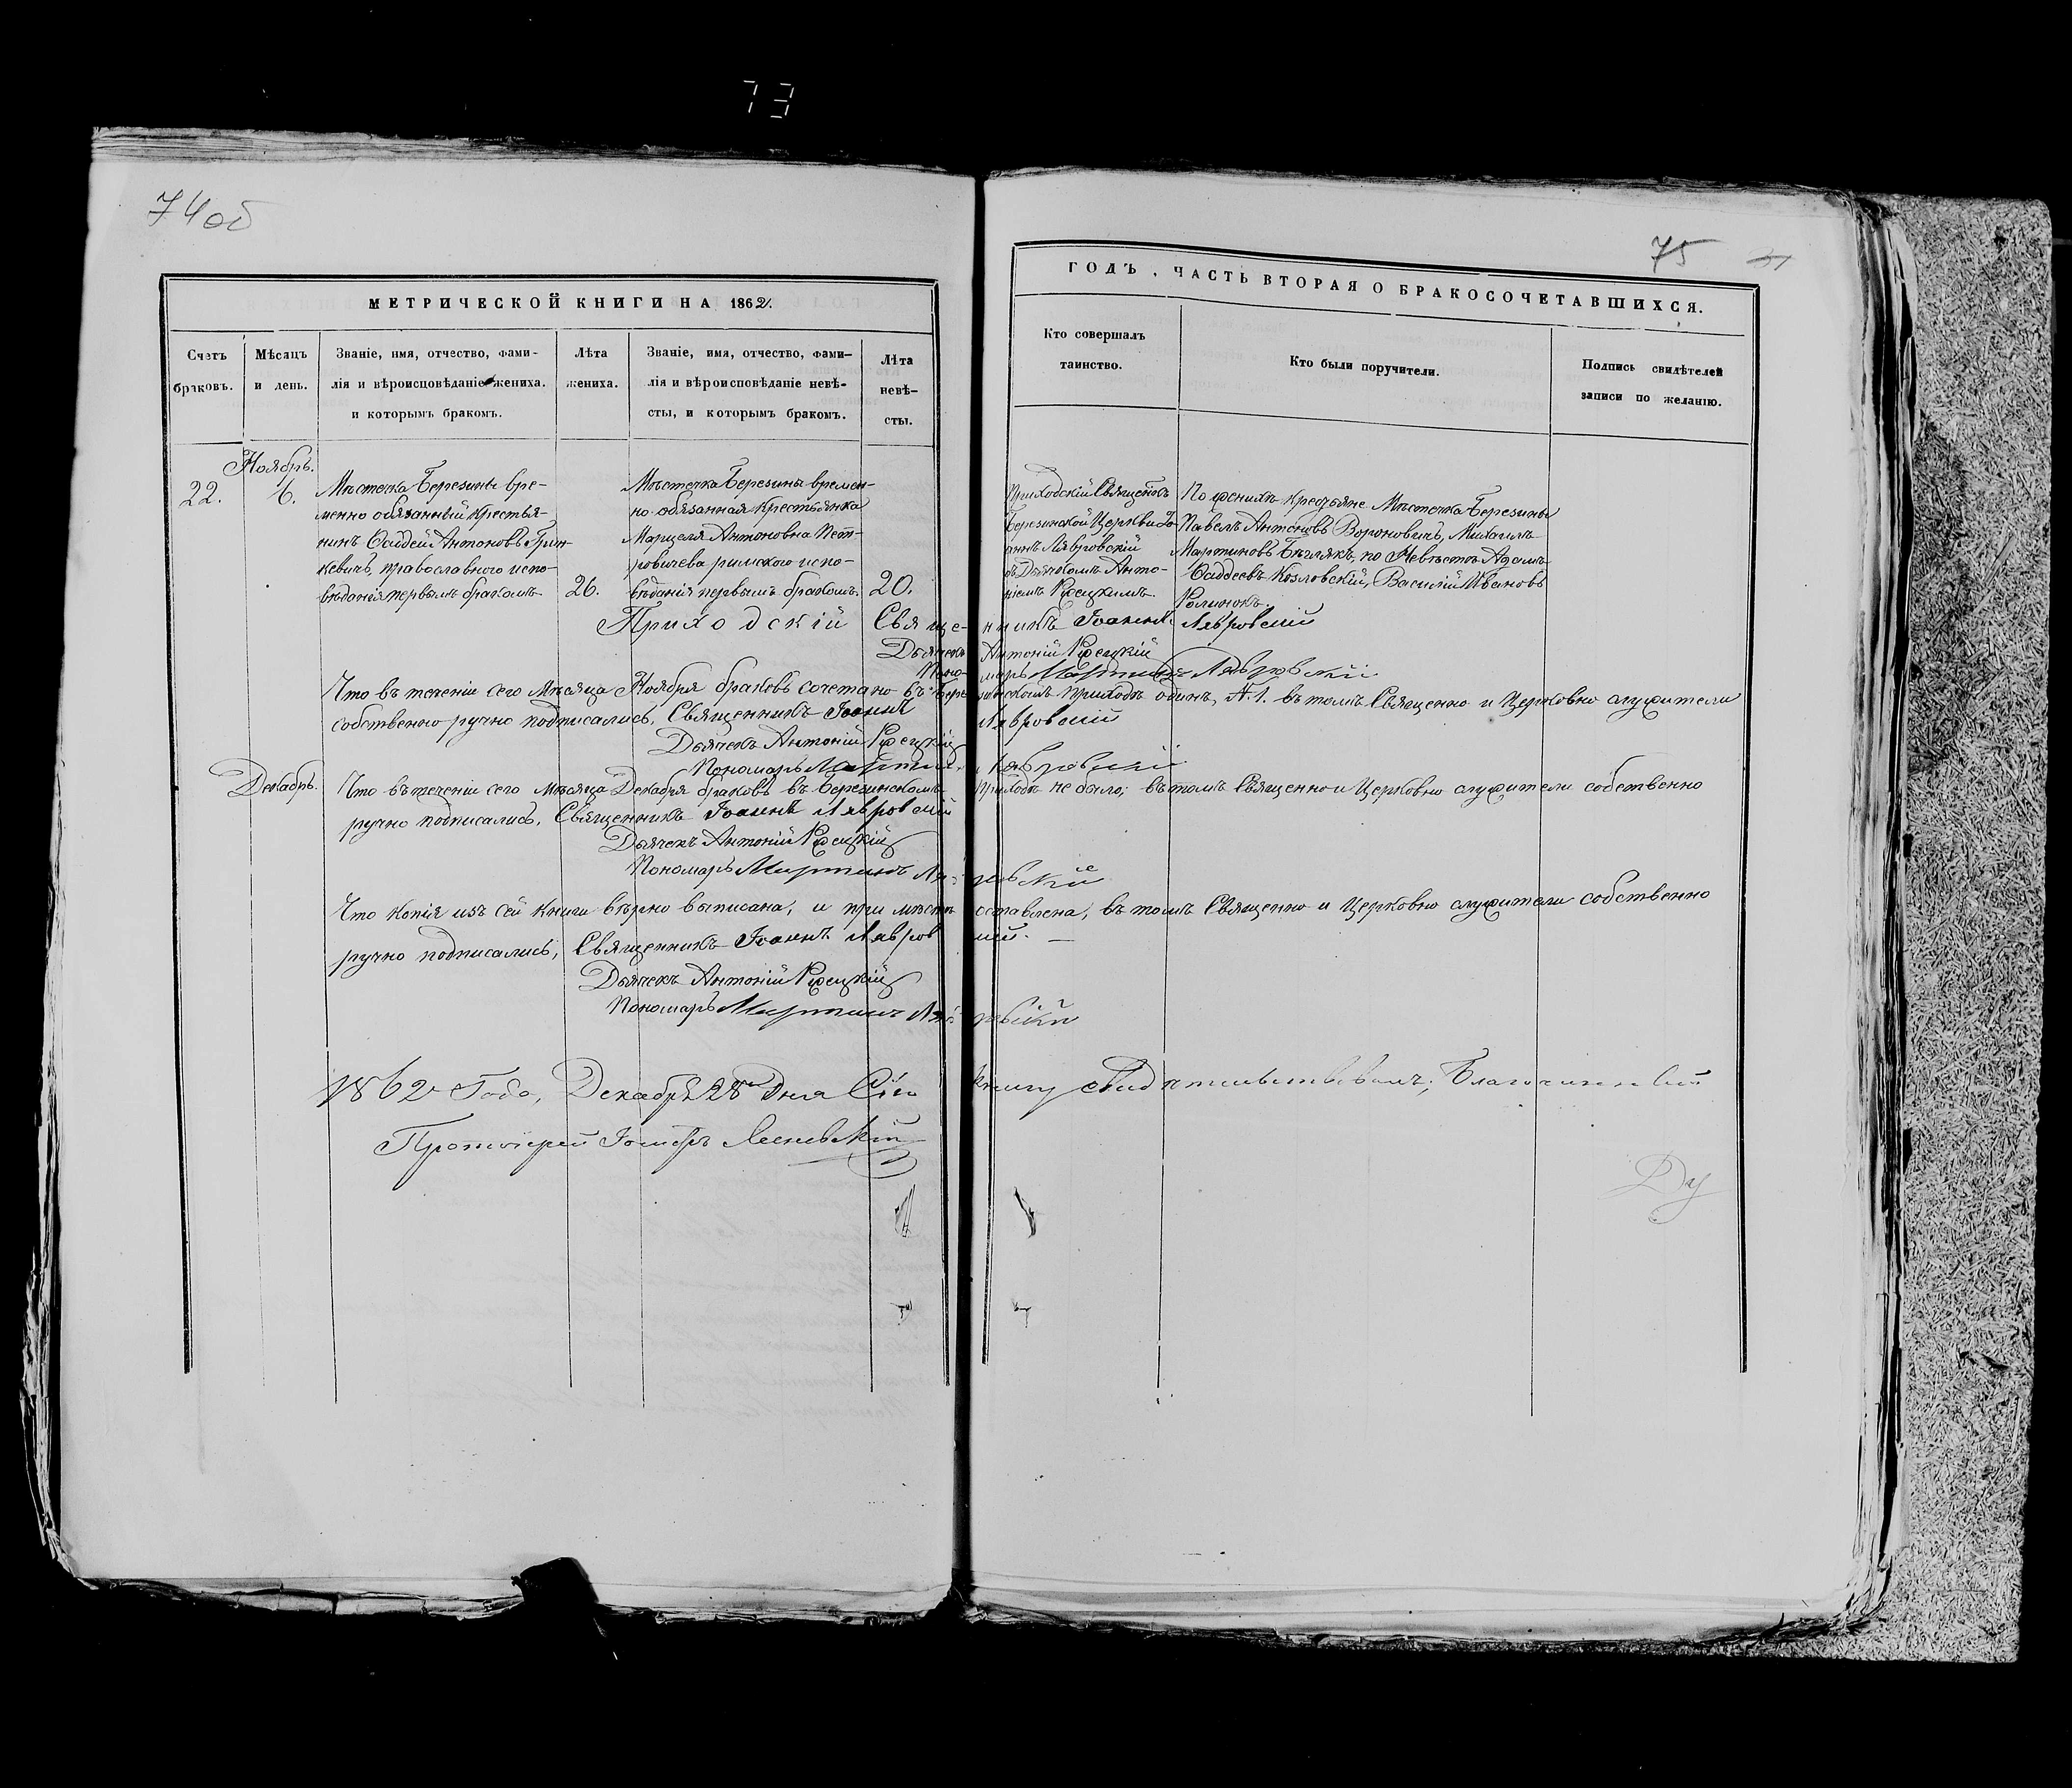 73
74об
МЕТРИЧЕСКОЙ КНИГИ НА 1862.
Счетъ браковъ.
Мѣсяцъ и день.
Званіе, имя, отчество, фами-
лія и вѣроисповѣданіе жениха.
и которымъ бракомъ.
Лѣта жениха.
Званіе, имя, отчество, фами-
лія и вѣроисповѣданіе невѣ-
сты, и которымъ бракомъ.
Лѣта невѣ-
сты.
Ноябрь.
22.
6.
Мѣстечка Березины вре-
менно обязанный крестья-
нинъ Ѳаддей Антоновъ Грин-
кевичъ, православнаго испо-
вѣданія первымъ бракомъ
26.
Мѣстечка Березины времен-
но обязанная крестьянка
Марцеля Антоновна Пет-
ровичева римскаго испо-
вѣданія первымъ бракомъ.
20.
75
ГОДЪ, ЧАСТЬ ВТОРАЯ О БРАКОСОЧЕТАВШИХСЯ.
Кто совершалъ
таинство.
Кто были поручители.
Подпись свидѣтелей
записи по желанію.
Приходскій Священникъ
Березинской Церкви Іо-
аннъ Лавровскій
съ Дьячкомъ Анто-
ніемъ
По женихѣ крестьяне Мѣстечка Березины
Павелъ Антоновъ Вороновичъ, Михаилъ
Мартиновъ Бѣглякъ, по Невѣстѣ Адамъ
Ѳаддеевъ Козловскій, Василій Ивановъ
Приходскій Священникъ Іоаннъ Лавровскій
Дьячекъ Антоній
Пономарь Мартинъ Лавровскій
Что въ теченіи сего Мѣсяца Ноября браковъ сочетано въ Березинскомъ приходѣ одинъ, №1. въ томъ Священно и Церковно служители
собственно ручно подписались, Священникъ Іоаннъ Лавровскій
Дьячекъ Антоній
Пономарь Мартинъ Лавровскій
Декабрь.
Что въ теченіи сего Мѣсяца Декабря браковъ въ Березинскомъ приходѣ не было; въ томъ Священно и Церковно служители собственно
ручно подписались, Священникъ Іоаннъ Лавровскій
Дьячекъ Антоній
Пономарь Мартинъ Лавровскій
Что копія изъ сей книги вѣрно выписана, и при мѣстѣ оставлена, въ томъ Священно и Церковно служители собственно
ручно подписались, Священникъ Іоаннъ Лавровскій. —
Дьячекъ Антоній
Пономарь Мартинъ Лавровскій
1862 Года, Декабря 28 Дня Сію книгу свидѣтельствовалъ; Благочинный
Протоіерей